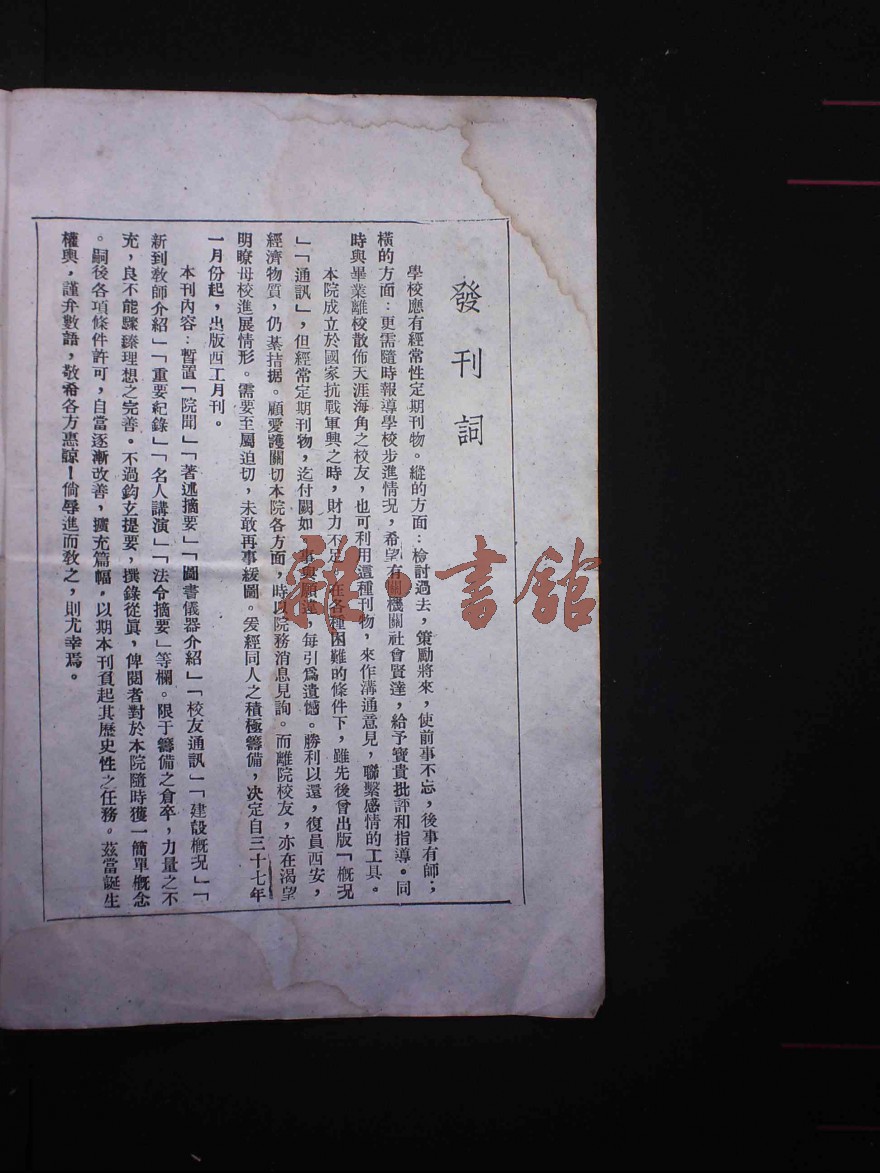 發刊詞
學校應有經常性定期刊物。縱的方面：檢討過去，策勵將來，使前事不忘，後事有師；
橫的方面：更需隨時報導學校步進情況，希望有關機關社會賢達，給予寶貴批評和指導。同
時與畢業離校散佈天涯海角之校友，也可利用這種刊物，來作溝通意見，聯繫感情的工具。
本院成立於國家抗戰軍興之時，財力不足，在各種困難的條件下，雖先後曾出版「概況
」「通訊」，但經常定期刊物，迄付闕如，事與願違，每引爲遺憾。勝利以還，復員西安，
經濟物質，仍棊拮据。顧愛護關切本院各方面，時以院務消息見詢。而離院校友，亦在渴望
明瞭母校進展情形。需要至屬迫切，未敢再事緩圖。爰經同人之積極籌備，決定自三十七年
一月份起，出版西工月刊。
本刊內容：暫置「院聞」「著述摘要」「圖書儀器介紹」「校友通訊」「建設概況」「
新到教師介紹」「重要紀錄」「名人講演」「法令摘要」等欄。限于籌備之倉卒，力量之不
充，良不能驟臻理想之完善。不過鈎玄提要，撰錄從眞，俾閱者對於本院隨時獲一簡單概念
。嗣後各項條件許可，自當逐漸改善，擴充篇幅，以期本刊頁起其歷史性之任務。茲當誕生
權輿，謹弁數語，敬希各方惠諒！倘辱進而敎之，則尤幸焉。
雜·書館